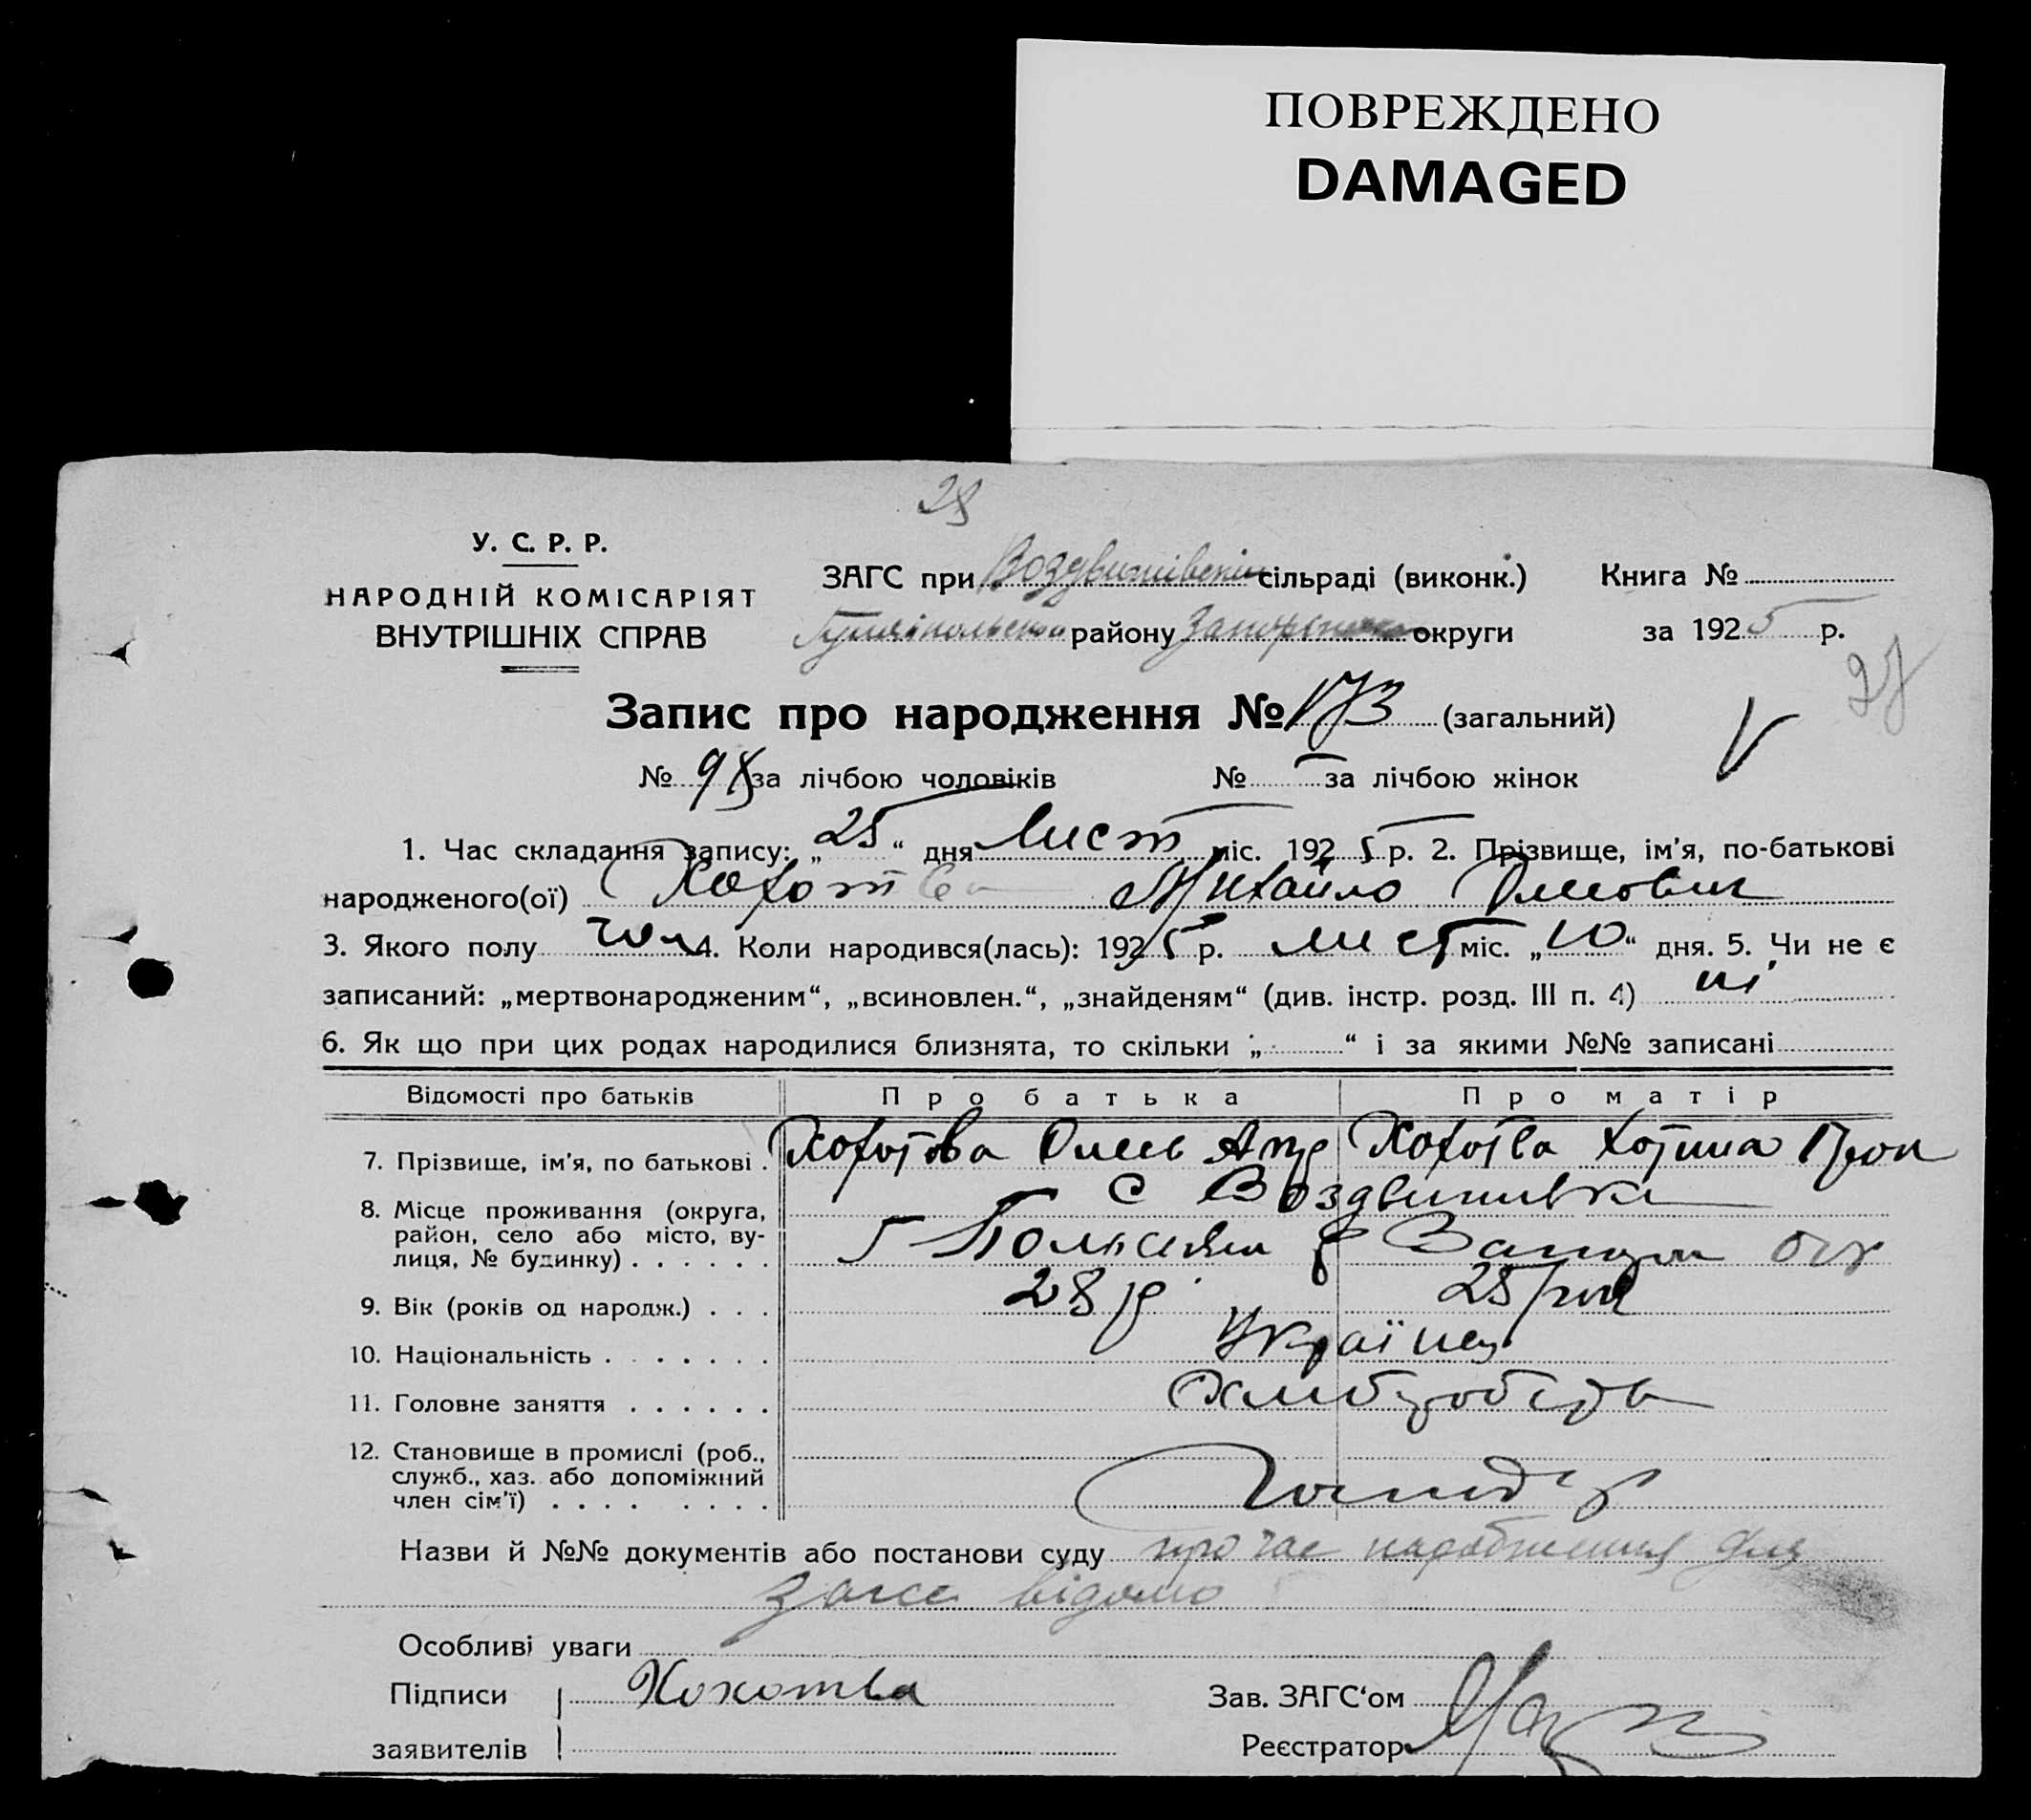 ПОВРЕЖДЕНО
DAMAGED
28
У. С. Р. Р.
НАРОДНІЙ КОМІСАРІЯТ
ВНУТРІШНІХ СПРАВ
ЗАГС при Воздвижівськім сільраді (виконк.) Книга №
району округи за 1925 р.
Запис про народження № 173 (загальний)
№ за лічбою чоловіків № за лічбою жінок
1. Час складання запису: „25“ дня Лист міс. 1925 р. 2. Прізвище, ім'я, по-батькові
народженого(ої) Михайло
3. Якого полу чол 4. Коли народився(лась): 1925 р. лист міс. „10“ дня. 5. Чи не є
записаний: „мертвонародженим“, „всиновлен.“, „знайденям“ (див. інстр. розд. III п. 4) ні
6. Як що при цих родах народилися близнята, то скільки „ “ і за якими №№ записані
Відомості про батьків Про батька Про матір
7. Прізвище, ім'я, по батькові . Олесь Анд
8. Місце проживання (округа, с Воздвижівка
район, село або місто, ву-
лиця, № будинку) . . . . . . Г Польський р Запор окр
9. Вік (років од народж.) . . . 28 р. 25 рок
10. Національність . . . . . . . Українці
11. Головне заняття . . . . . .
12. Становище в промислі (роб.,
служб., хаз. або допоміжний
член сім'ї) . . . . . . . .
Назви й №№ документів або постанови суду про час народження для
загсе відомо
Особливі уваги
Підписи Хохотва Зав. ЗАГС'ом
заявителів Реєстратор